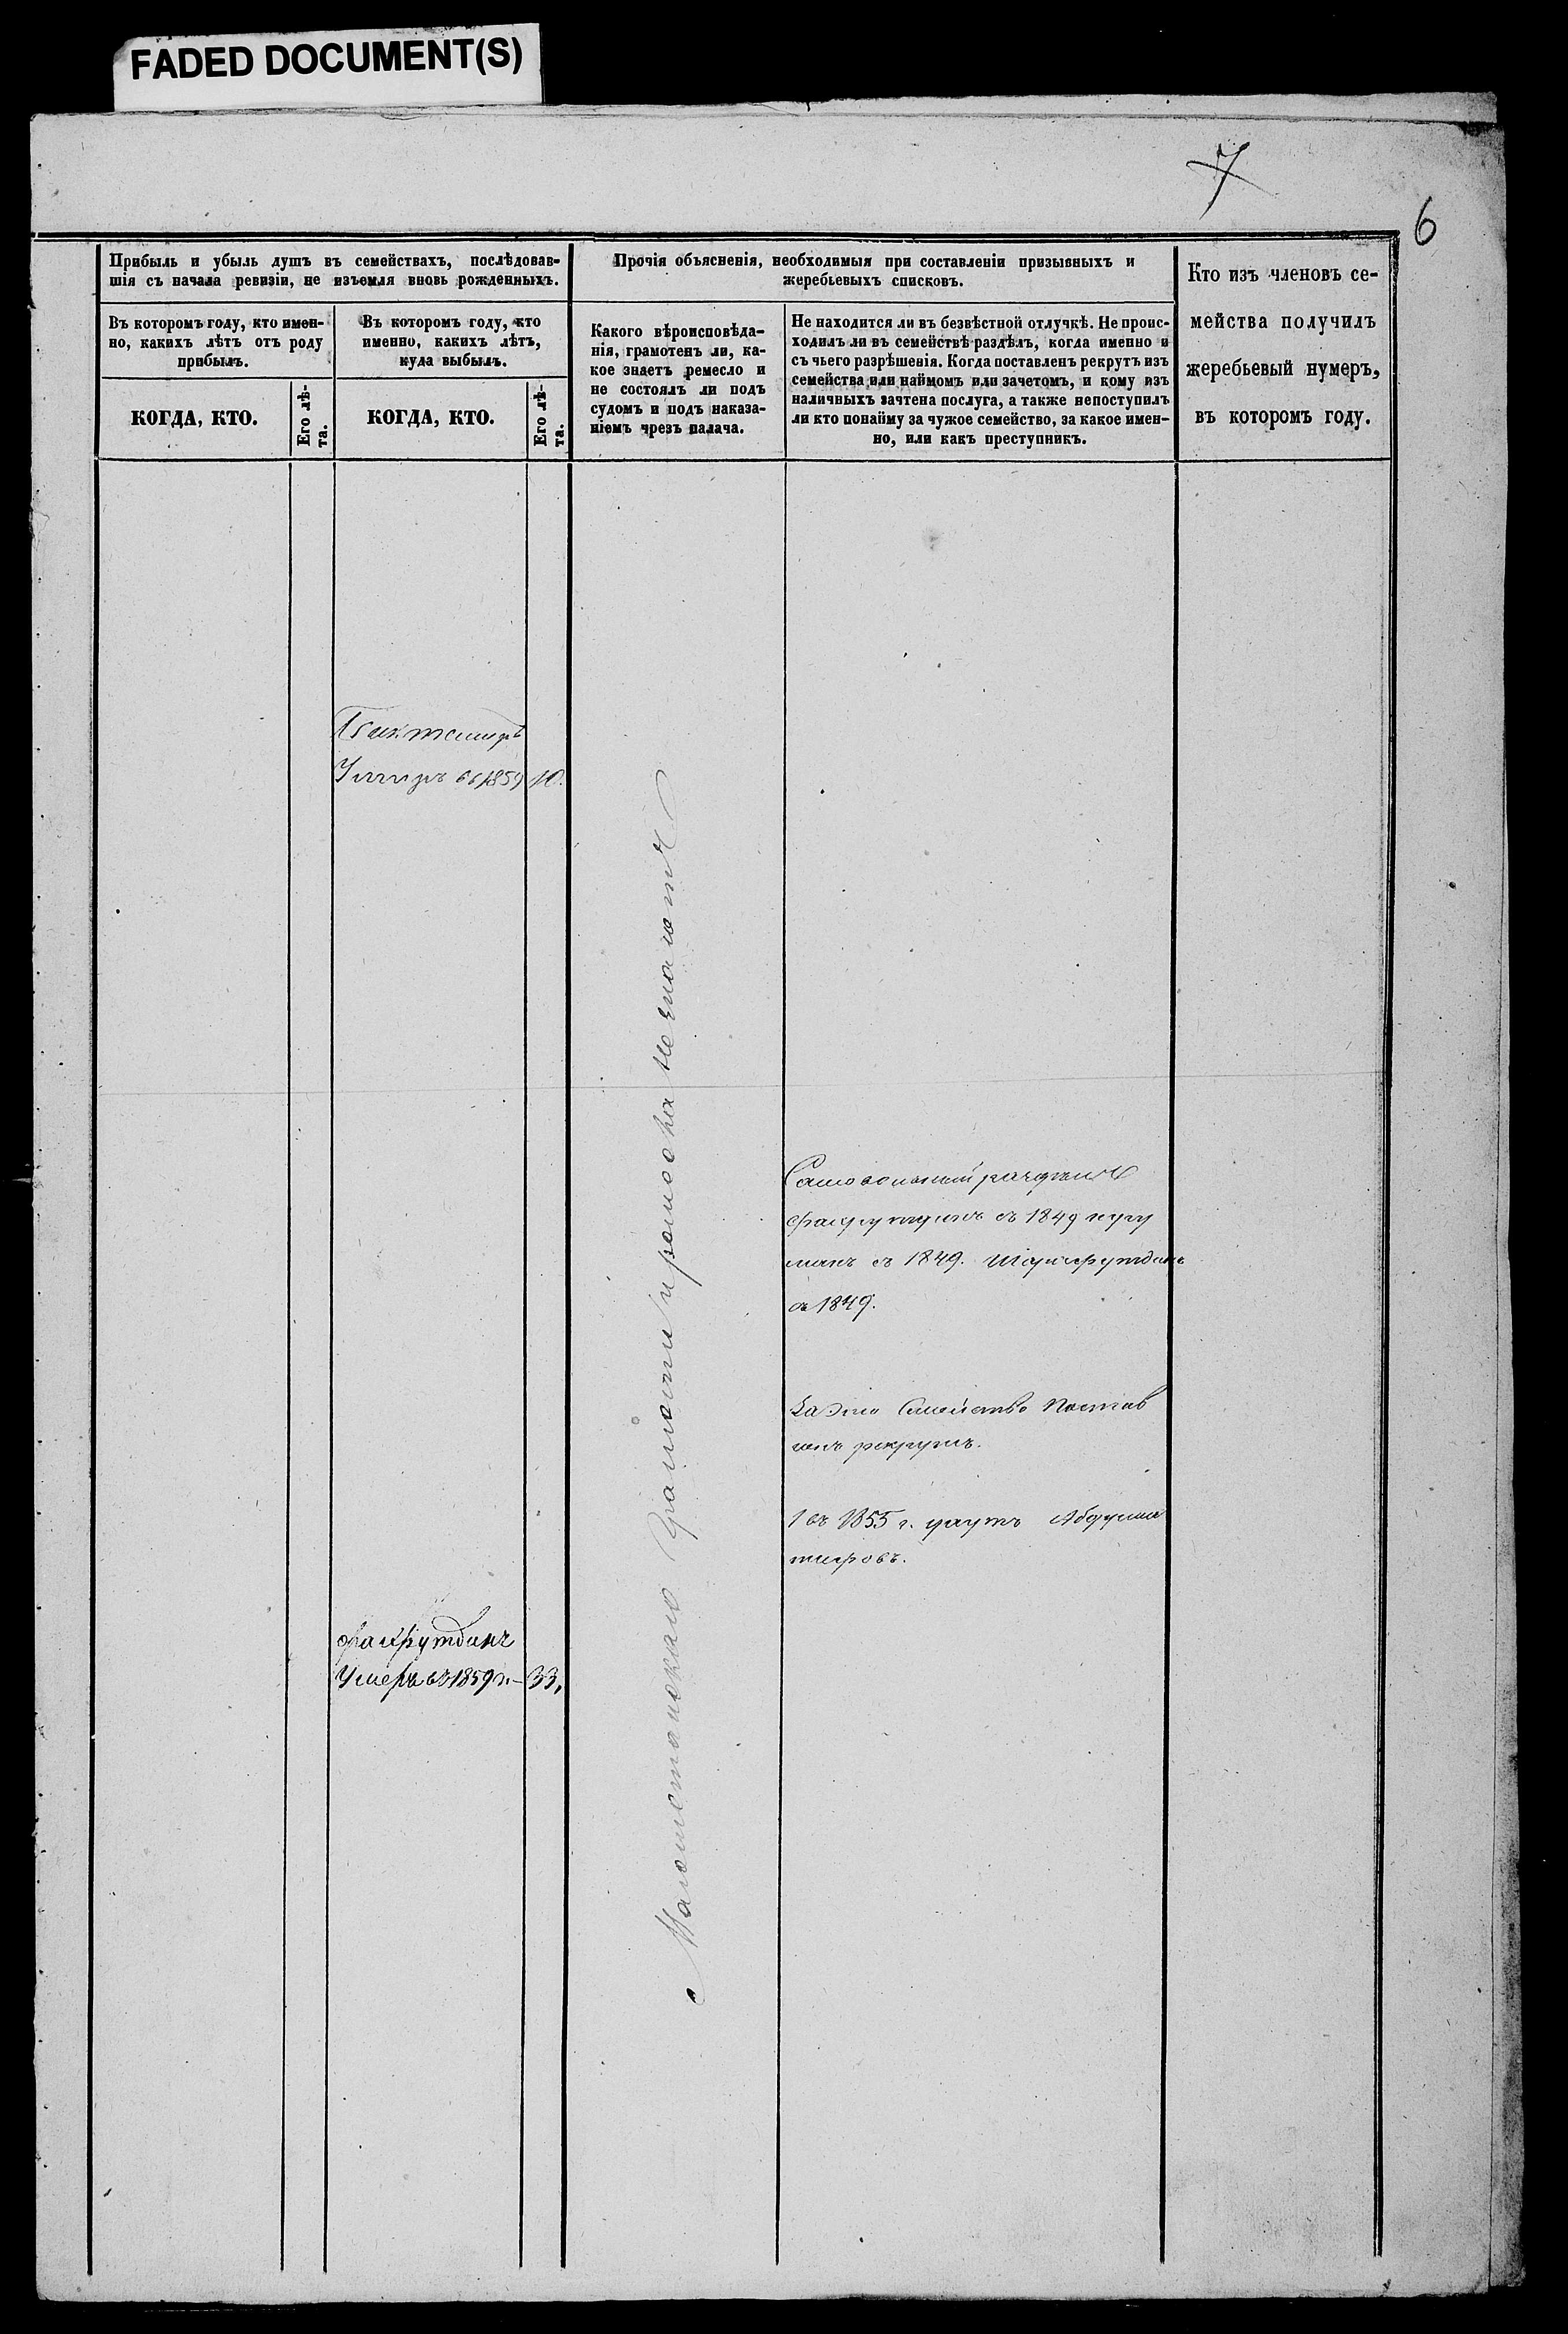 FADED DOCUMENT(S)
7
6
Прибыль и убыль душъ въ семействахъ, послѣдовав-
шія съ начала ревизіи, не изъемля вновь рожденныхъ.
Въ которомъ году, кто имен-
но, какихъ лѣтъ отъ роду
прибылъ.
КОГДА, КТО.
Его лѣ-
та.
Въ которомъ году, кто
именно, какихъ лѣтъ,
куда выбылъ.
КОГДА, КТО.
Его лѣ-
та.
Прочія объясненія, необходимыя при составленіи призывныхъ и
жеребьевыхъ списковъ.
Какого вѣроисповѣда-
нія, грамотенъ ли, ка-
кое знаетъ ремесло и
не состоялъ ли подъ
судомъ и подъ наказа-
ніемъ чрезъ палача.
Не находится ли въ безвѣстной отлучкѣ. Не проис-
ходилъ ли въ семействѣ раздѣлъ, когда именно и
съ чьего разрѣшенія. Когда поставленъ рекрутъ изъ
семейства или наймомъ или зачетомъ, и кому изъ
наличныхъ зачтена послуга, а также непоступилъ
ли кто понайму за чужое семейство, за какое имен-
но, или какъ преступникъ.
Кто изъ членовъ се-
мейства получилъ
жеребьевый нумеръ,
въ которомъ году.
Умеръ въ 1859 10.
Магометанскаго Грамоты и ремесла не знаютъ
Самовольный раздѣлъ
съ 1849
съ 1849. Шаифутдинъ
съ 1849.
За Это Семейство Постав
ленъ рекрутъ.
1 въ 1855 г. Абдулма
Фахрутдинъ
Умеръ въ 1859 г. 33,